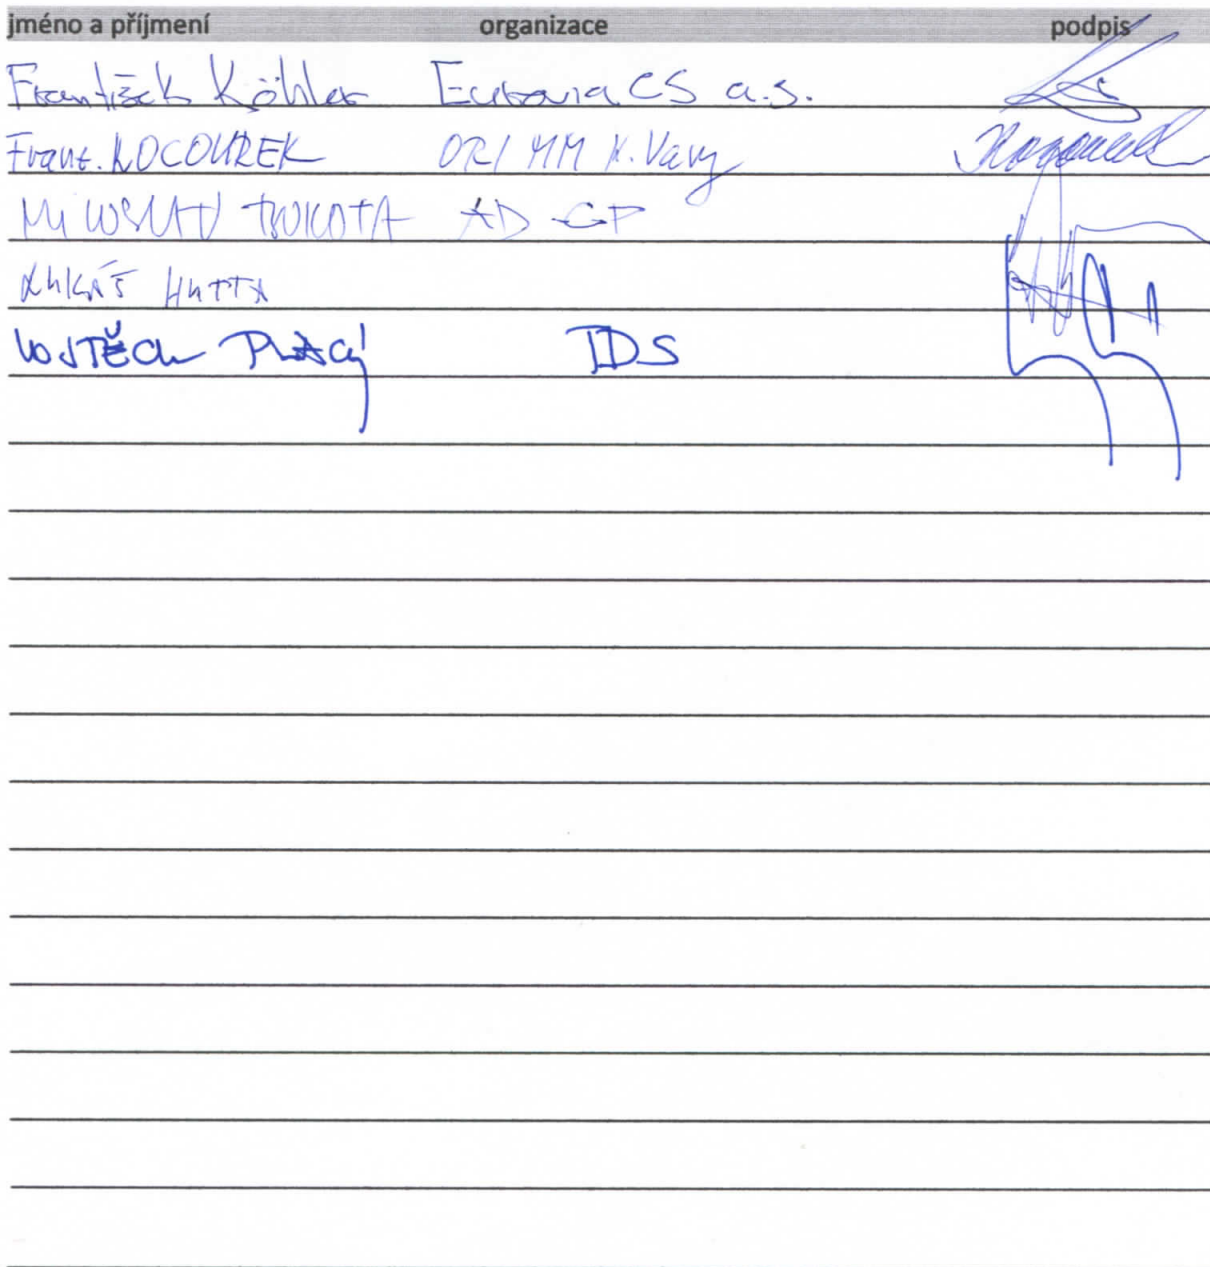 jméno a příjmení organizace podpis
František Köhler Eurovia CS a.s.
Frant. KOCOUREK ORI MM K. Vary
AD GP
LUKÁŠ HUTTA
VOJTĚCH IDS